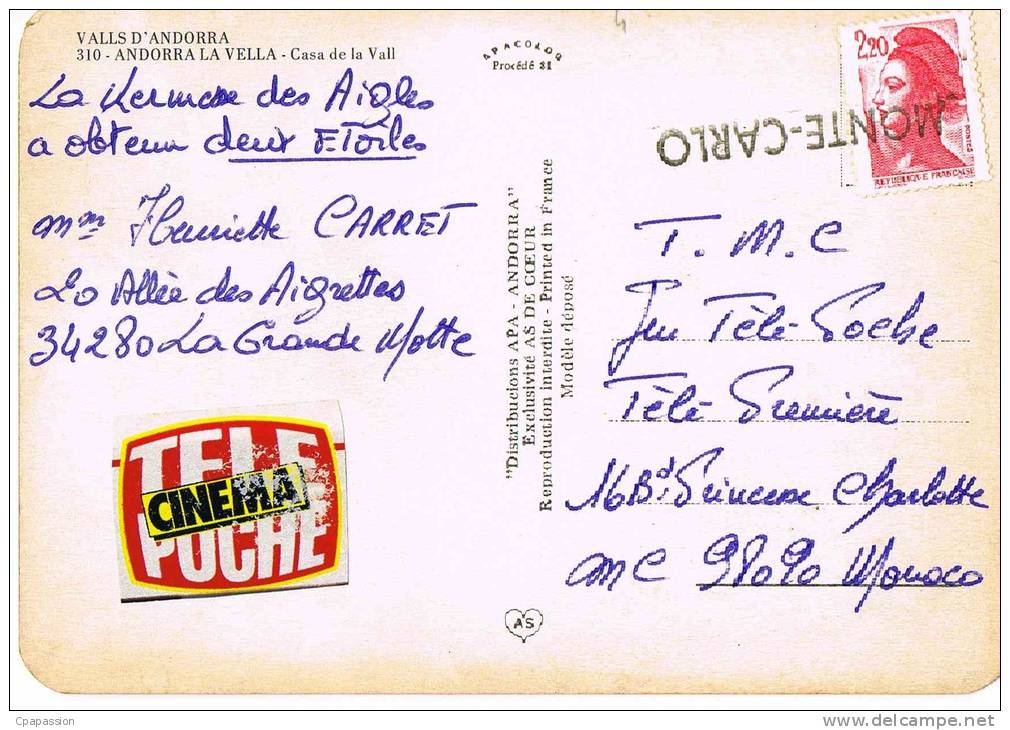 VALLS D'ANDORRA
310 - ANDORRA LA VELLA - Casa de la Vall
La Kermesse des Aigles
a obtenu deux ETOILES
Mme Henriette CARRET
20 Allée des Aigrettes
34280 La Grande Motte
TELE
CINEMA
POCHE
APACOLOR
Procédé 31
"Distribucions APA - ANDORRA"
Exclusivité AS DE CŒUR
Reproduction interdite - Printed in France
Modèle déposé
AS
2,20
POSTES
REPUBLIQUE FRANÇAISE
MONTE-CARLO
T. M. C
Jeu Télé-Poche
Télé-Première
16 Bd. Princesse Charlotte
MC 98090 Monaco
Cpapassion
www.delcampe.net